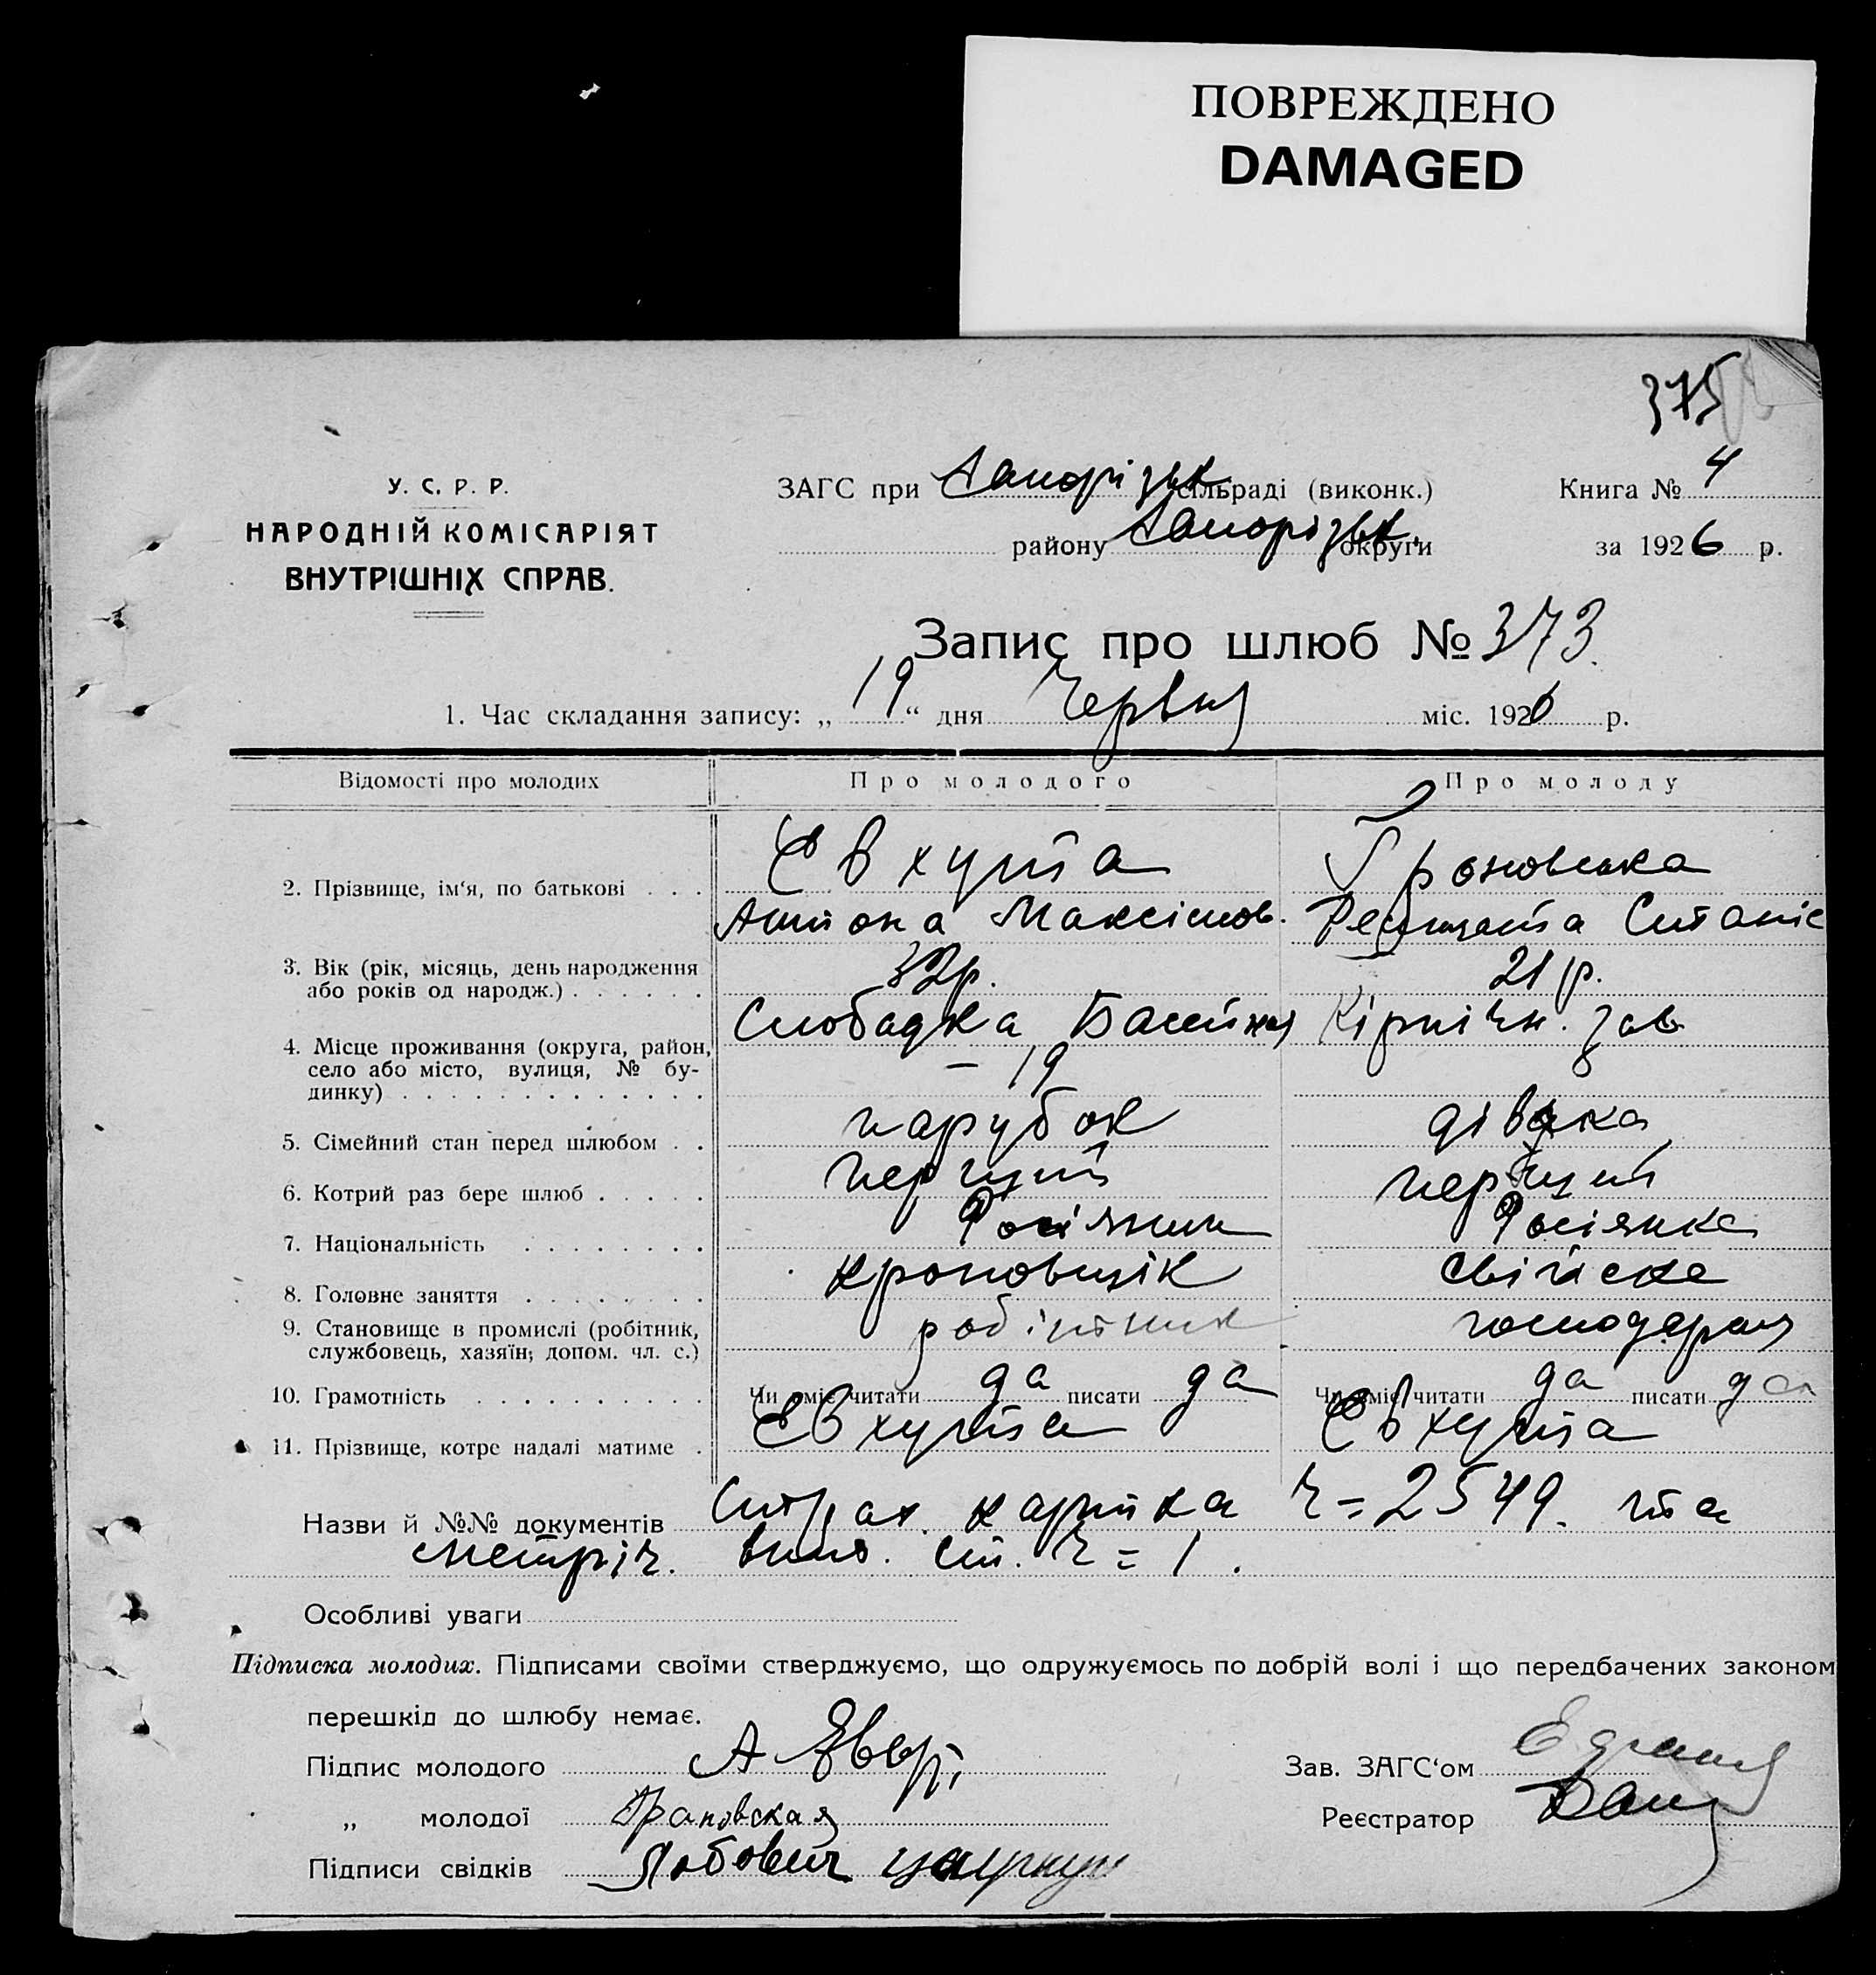 ПОВРЕЖДЕНО
DAMAGED
375
У. С. Р. Р.
НАРОДНІЙ КОМІСАРІЯТ
ВНУТРІШНІХ СПРАВ.
ЗАГС при Запорізьк сільраді (виконк.) Книга № 4
району Запорізьк. округи за 1926 р.
Запис про шлюб № 373.
1. Час складання запису: „ 19 “ дня Червня міс. 1926 р.
Відомості про молодих Про молодого Про молоду
2. Прізвище, ім‘я, по батькові Євхута
Антона Максімов. Станіс
3. Вік (рік, місяць, день народження або років од народж.) 32р. 21 р.
4. Місце проживання (округа, район, село або місто, вулиця, № будинку) Слободка Басейная – 19 Кірпічн. зав
5. Сімейний стан перед шлюбом парубок дівка
6. Котрий раз бере шлюб перший перший
7. Національність Росіянин Росіянка
8. Головне заняття кроповщік
9. Становище в промислі (робітник, службовець, хазяїн; допом. чл. с.) робітник господарка
10. Грамотність Чи вміє читати да писати да Чи вміє читати да писати да
11. Прізвище, котре надалі матиме Євхута Євхута
Назви й №№ документів Страх. картка ч=2549. та
метріч. вип. ст. ч=1.
Особливі уваги
Підписка молодих. Підписами своїми стверджуємо, що одружуємось по добрій волі і що передбачених законом
перешкід до шлюбу немає.
Підпис молодого Зав. ЗАГС‘ом
„ молодої Реєстратор
Підписи свідків